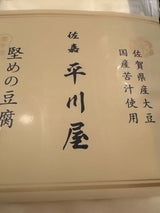 佐賀県産大豆
国産苦汁使用
佐嘉
平川屋
堅めの豆腐